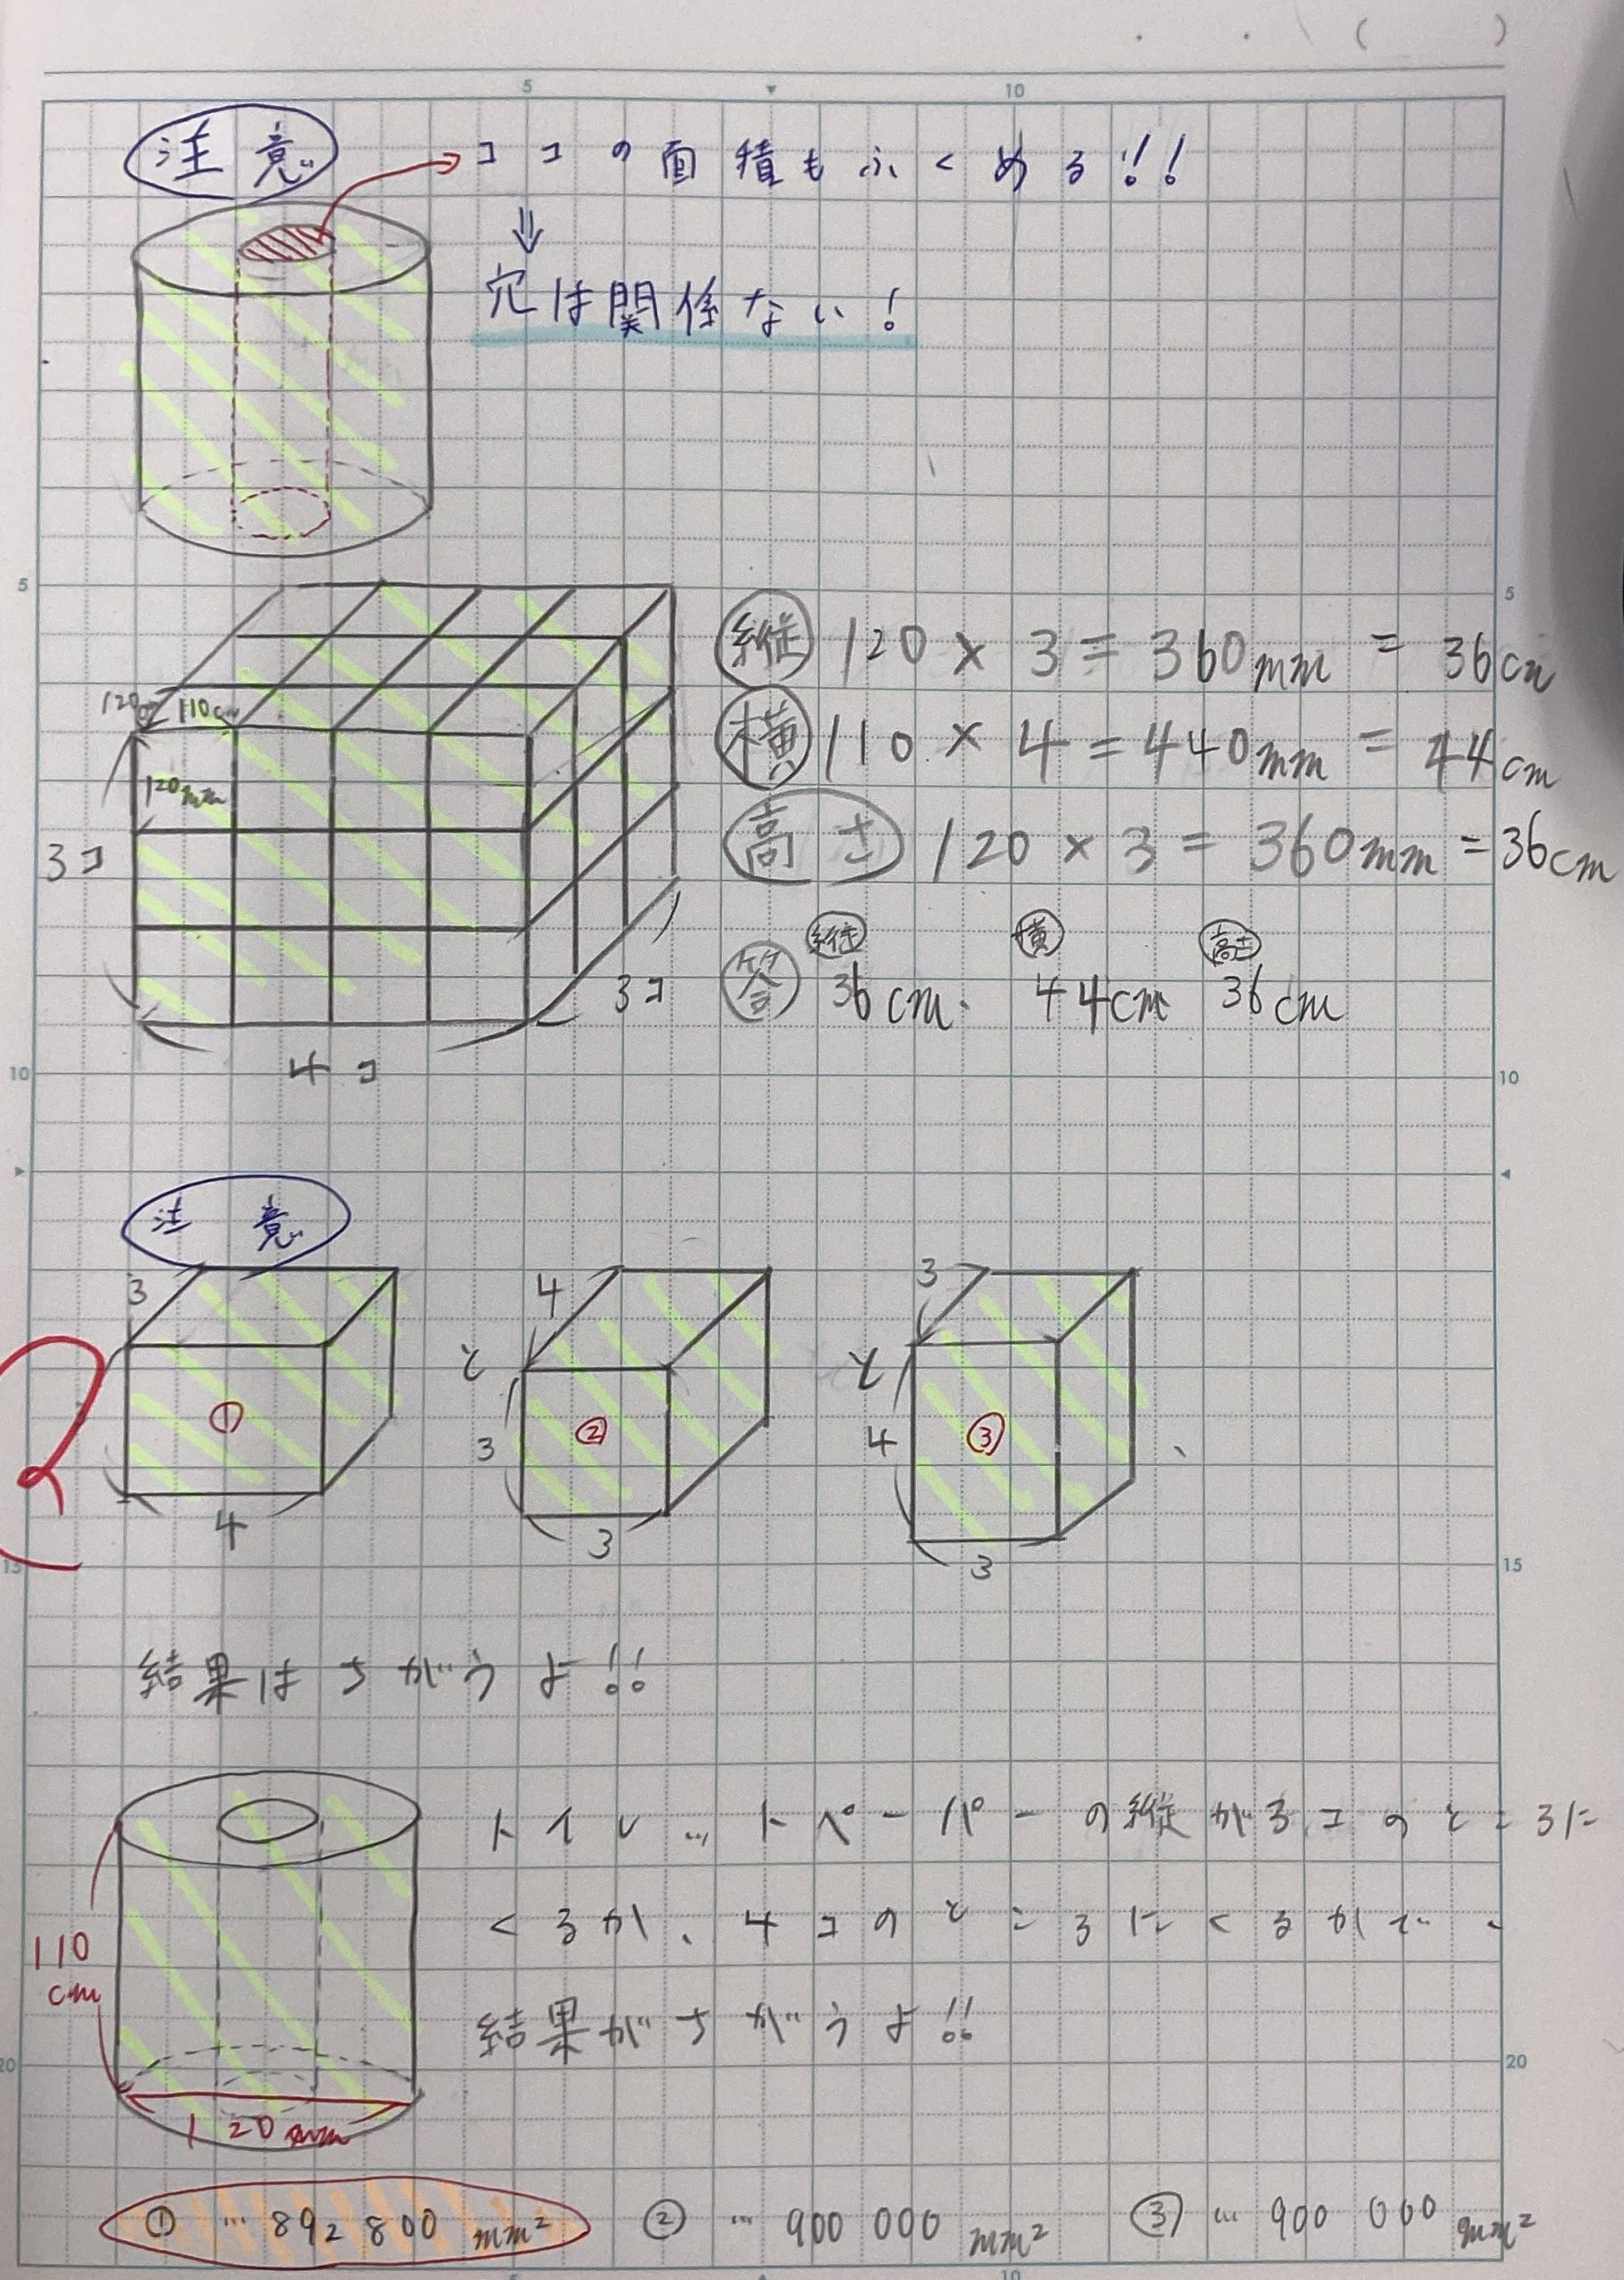 5 10
注意 ココの面積もふくめる!!
⇓
穴は関係ない!
5 5
縦 120 × 3 = 360mm = 36cm
120 110cm
横 110 × 4 = 440mm = 44cm
120mm
3コ
高さ 120 × 3 = 360mm = 36cm
縦 横 高さ
答 36cm. 44cm 36cm
3コ
4コ
10 10
注意
3 4 3
と と
① ② ③
3 4
4 3 3
2
15 15
結果はちがうよ!!
トイレ…トペーパーの縦が3コのところに
くるか、4コのところにくるかで、
110
cm
結果がちがうよ!!
20 20
120mm
① … 892 800 mm² ② … 900 000 mm² ③ … 900 000 mm²
5 10